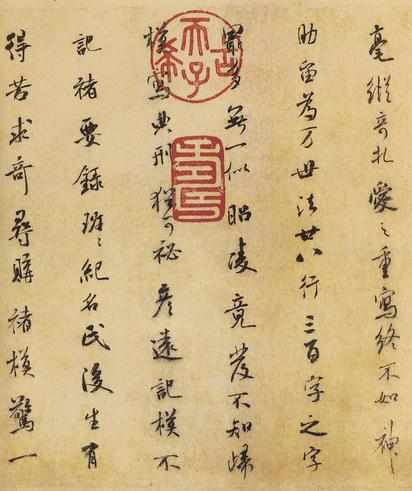 毫縱奇札愛之重寫終不如神
助留為万世法廿八行三百字之字
最多無一似昭陵竟發不知歸
模寫典刑猶可秘彦遠記模不
記褚要錄班〻紀名氏後生有
得苦求奇尋購褚模驚一
古希天子
壽